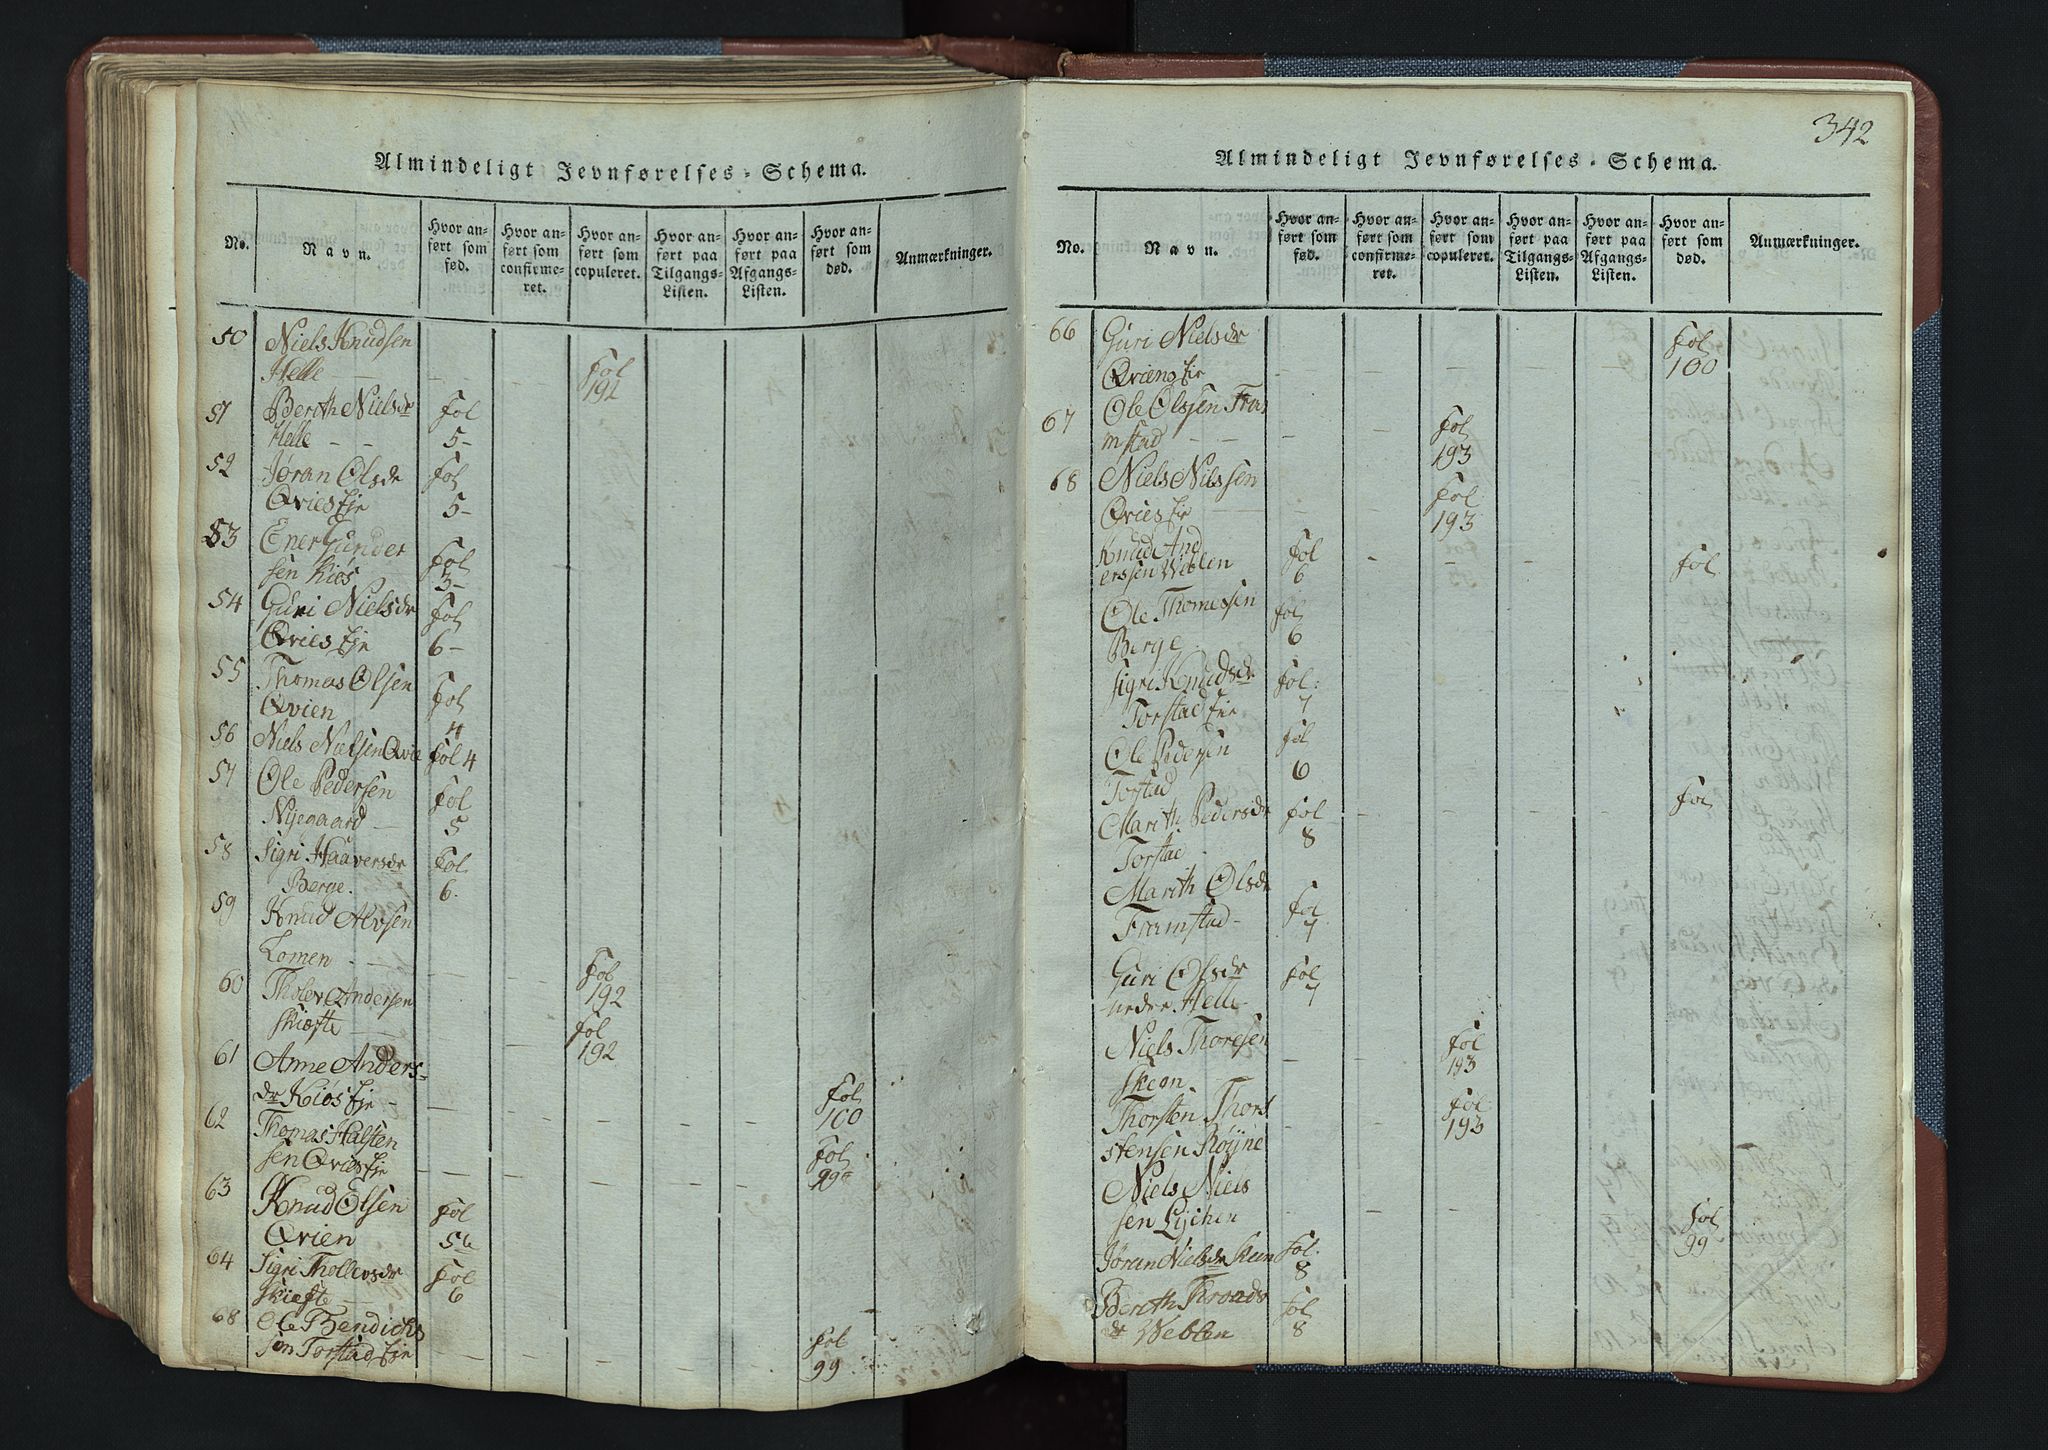 Almindeligt Jevnførelses-Schema.
No.
Navn.
Hvor anført som fød.
Hvor anført som confirmeret.
Hvor anført som copuleret.
Hvor anført paa Tilgangs-Listen.
Hvor anført paa Afgangs-Listen.
Hvor anført som død.
Anmærkninger.
50 Niels Knudsen
Helle - - - Fol 192
51 Berith Nielsdr Fol
Helle - - 5-
52 Jøran Olsdr Fol
Qvies Eje 5-
53 Ener Gunder
sen Kiøs Fol 3-
54 Guri Nielsdr Fol
Qvies Eje 6-
55 Thomas Olsen
Qvien Fol 4
56 Niels Nielsen Qvie Fol 4
57 Ole Pedersen Fol
Nijegaard - 5
58 Sigri Haaversdr Fol.
Berge. 6.
59 Knud Alvsen
Lomen - - - Fol 192
60 Tholev Andersen
Skiefte - - Fol 192
61 Anne Anders-
dr Kiøs Eje - - - - - - Fol 100
62 Thomas Halsten
sen Qvies Eje - - - - - Fol 99
63 Knud Olsen Fol
Qvien 5
64 Sigri Thollevsdr Fol
Skiefte - 6
68 Ole Bendichs
sen Torstad Eje - - - - - Fol 99
342
Almindeligt Jevnførelses-Schema.
No.
Navn.
Hvor anført som fød.
Hvor anført som confirmeret.
Hvor anført som copuleret.
Hvor anført paa Tilgangs-Listen.
Hvor anført paa Afgangs-Listen.
Hvor anført som død.
Anmærkninger.
66 Guri Nielsdr
Qviens Eje - - - - - Fol 100
67 Ole Olssen Fra
mstad - - - - Fol 193
68 Niels Nilssen
Qvies Eje - - Fol 193
Knud And
erssen Weblen Fol 6 - - Fol
Ole Thomessen Fol
Berge 6
Sigri Knudsdr Fol:
Torstad Eje 7
Ole Pedersen Fol
Torstad 6
Marith Pedersdr Fol - - - - Fol
Torstad 8
Marith Olsdr
Framstad - Fol 7
Guri Olsdr Fol
neder Helle 7
Niels Thoresen - - Fol
Skeon. 193
Thorsten Thors - - Fol
stensen Røÿne 193
Niels Niels
sen Lÿchen - - - - - Fol 99
Jøran Nielsdr Skeen Fol. 8
Berith Thronds Fol
dr Weblen 8